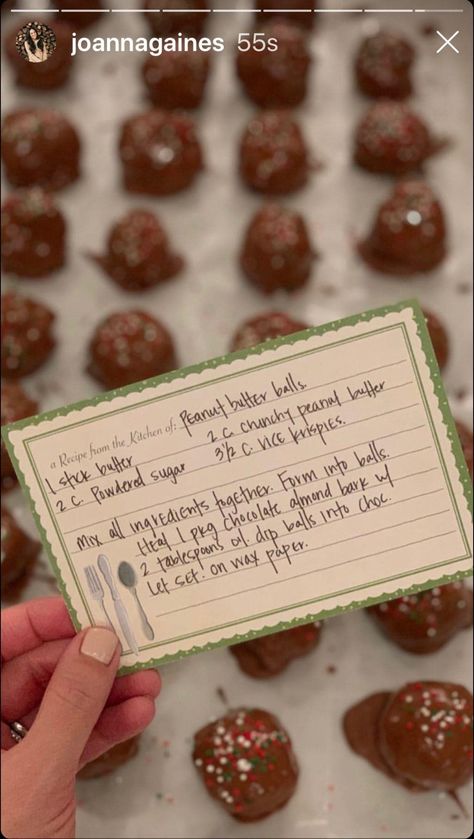 joannagaines 55s
a Recipe from the Kitchen of: Peanut butter balls.
1 stick butter
2 C. chunchy peanut butter
2 C. Powdered sugar
3 1/2 C. rice krispies.
Mix all ingredients together. Form into balls.
Heat 1 pkg chocolate almond bark w/
2 tablespoons oil. drip balls into choc.
Let set. on wax paper.